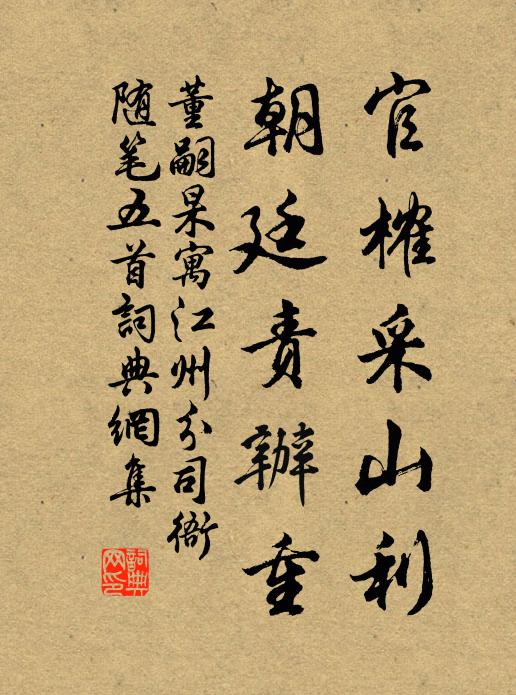 官榷采山利
朝廷責辦重
董嗣杲寓江州分司衙
随笔五首詞典網集
詞典
网印